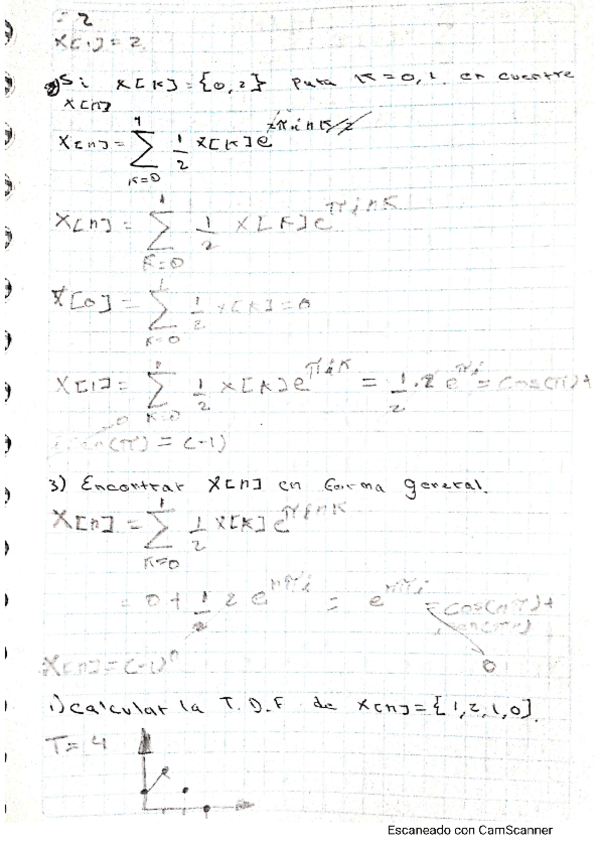 = 2
X[1] = 2
2) Si X[K] = {0,2} para K=0,1. encuentre
X[n]
X[n] = Σ_{K=0}^{1} 1/2 X[K] e^{2πinK/2}
X[n] = Σ_{K=0}^{1} 1/2 X[K] e^{πinK}
X[0] = Σ_{K=0}^{1} 1/2 X[K] = 0
X[1] = Σ_{K=0}^{1} 1/2 X[K] e^{πiK} = 1/2 · 2 e^{πi} = cos(π) +
sen(π) = (-1)
3) Encontrar X[n] en forma general.
X[n] = Σ_{K=0}^{1} 1/2 X[K] e^{πinK}
= 0 + 1/2 2 e^{nπi} = e^{nπi} = cos(nπ) +
sen(πn)
X[n] = (-1)^n
0
1) calcular la T.D.F de X[n] = {1,2,1,0}.
T = 4
Escaneado con CamScanner